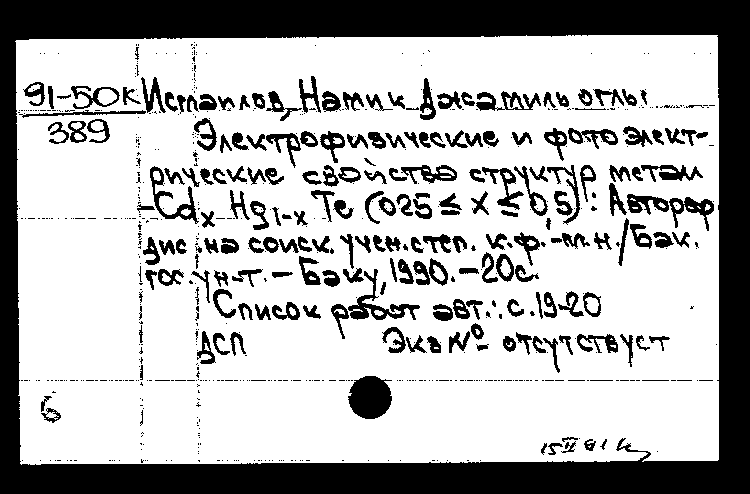 91-50К Исмаилов, Намик Джамиль оглы
389
Электрофизические и фотоэлект-
рические свойства структур металл
-Cdₓ Hg₁₋ₓ Te (0,25 ≤ x ≤ 0,5) : Автореф
дис. на соиск. учен. степ. к.ф.-м.н. / Бак.
гос. ун-т. - Баку, 1990. - 20с.
Список работ авт.: с. 19-20
ДСП Экз № отсутствует
6
15 II 91